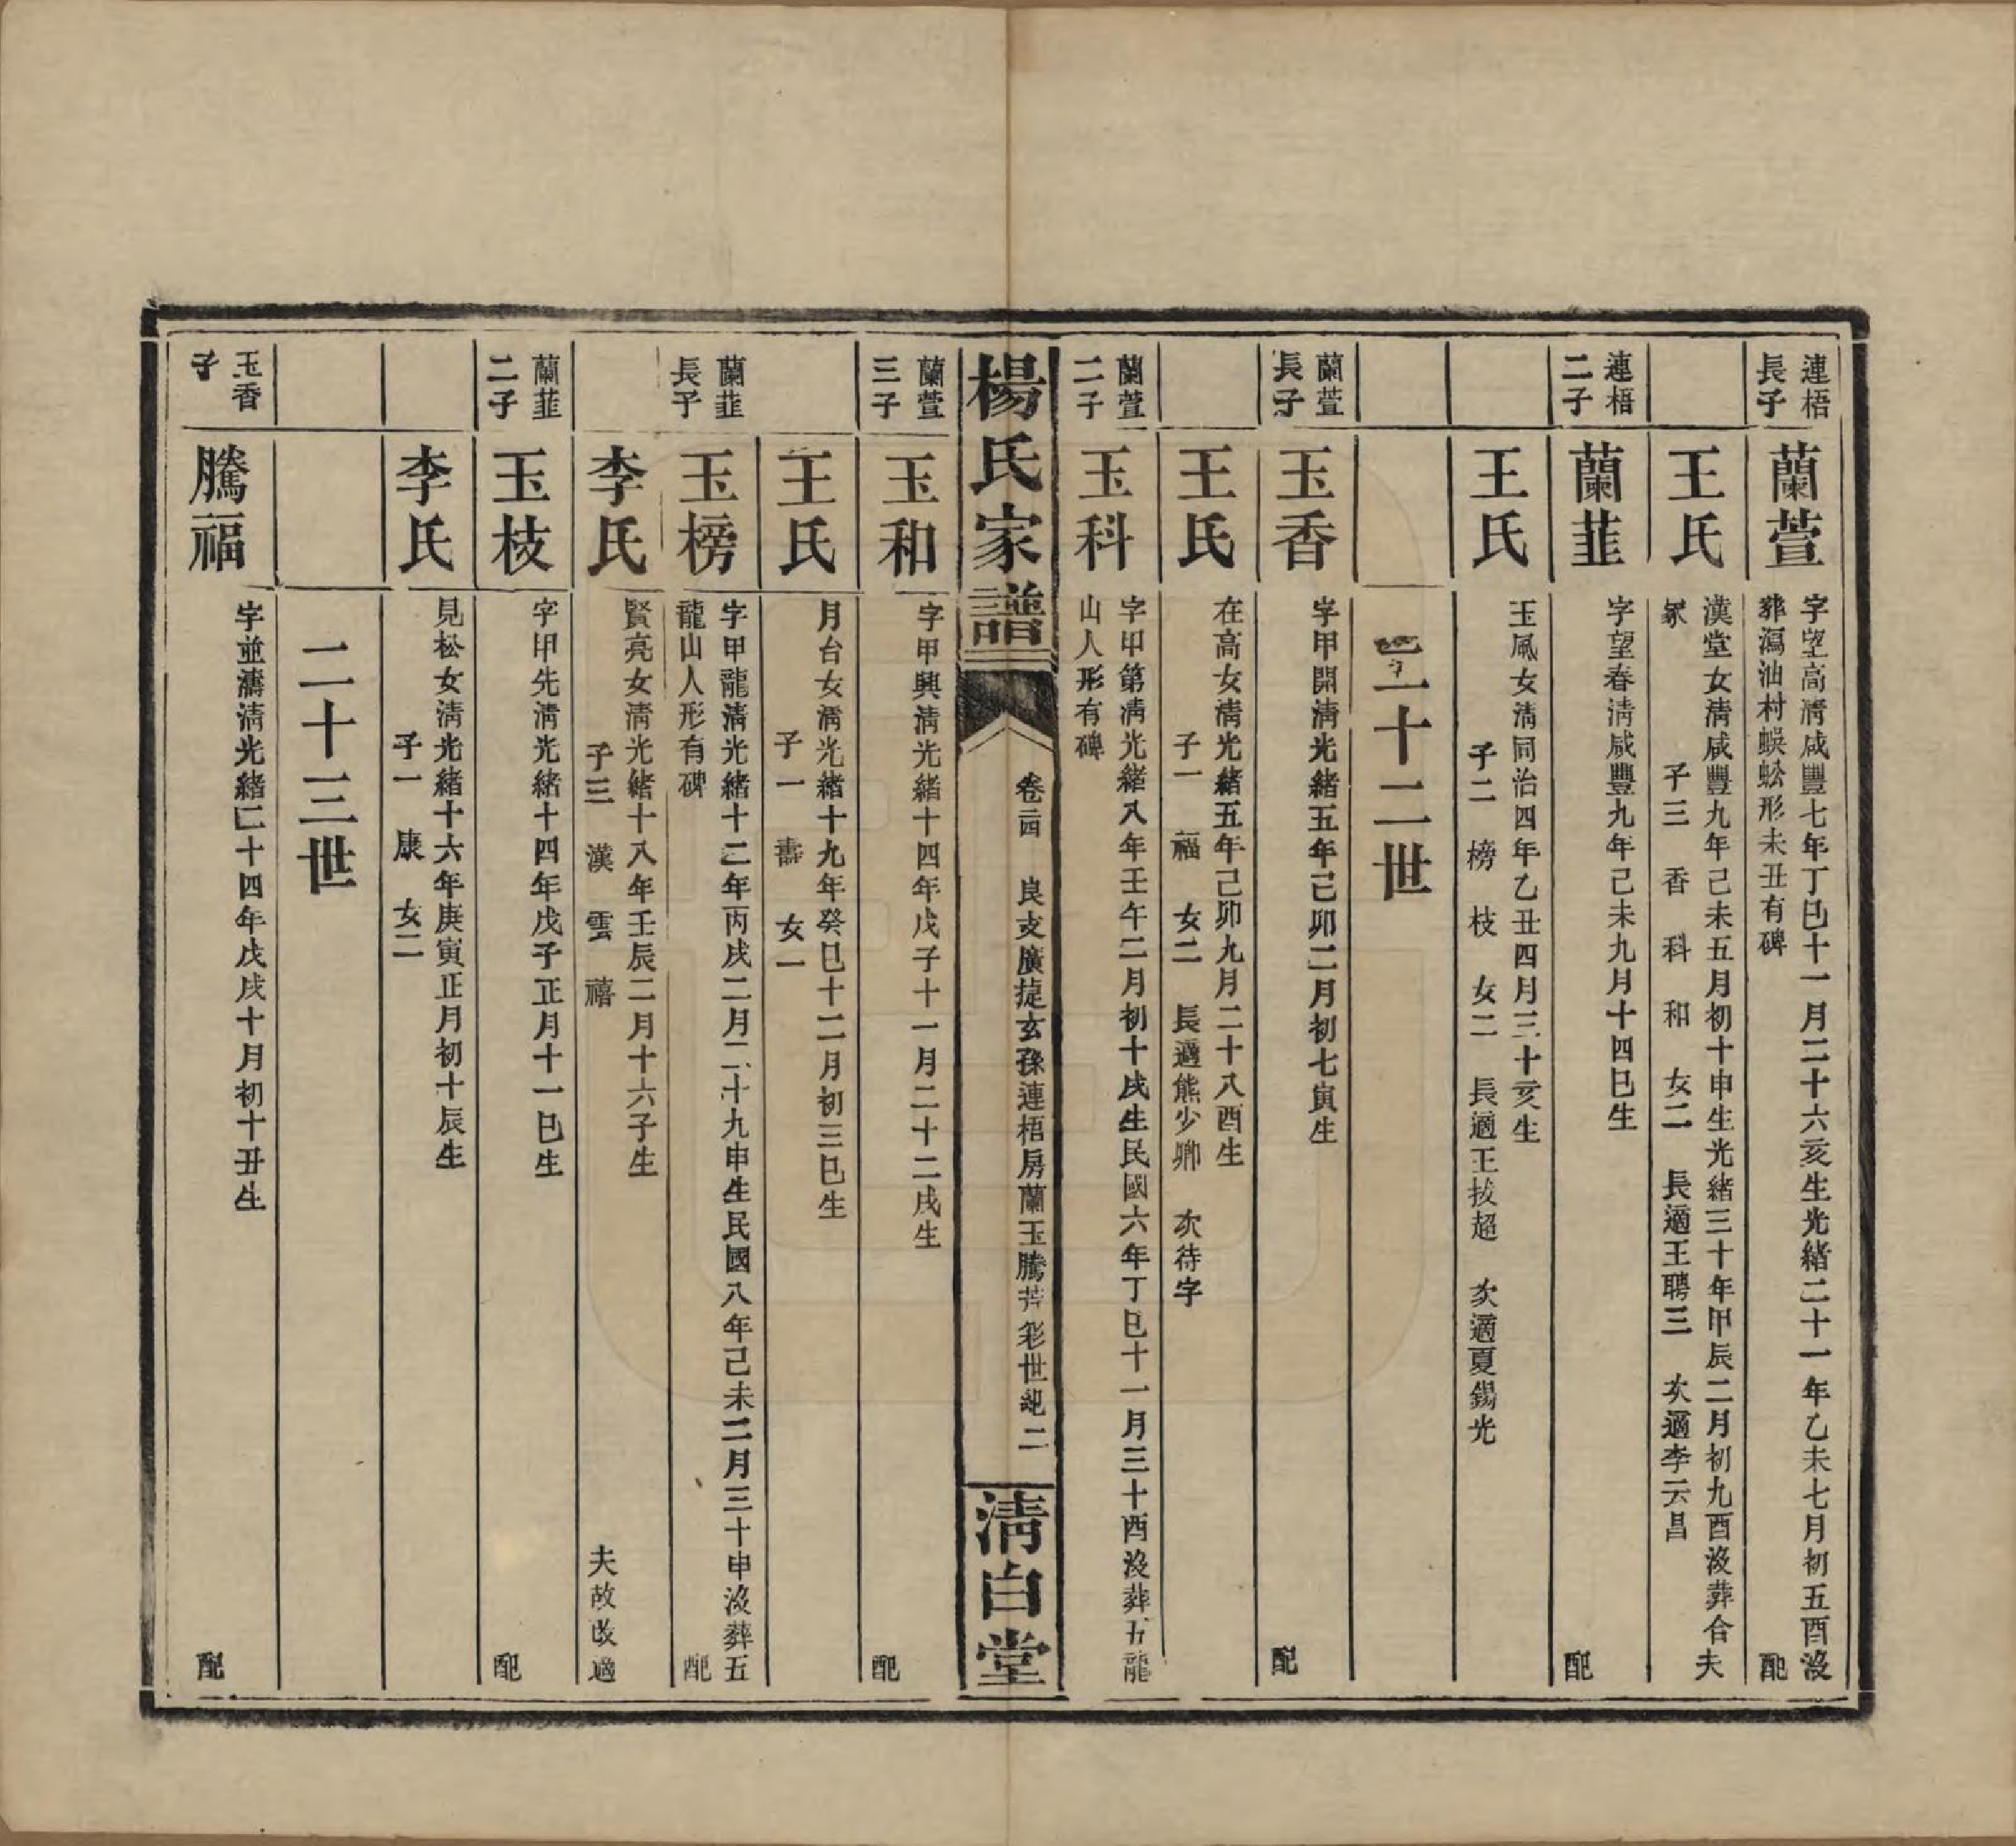 連梧
長子
蘭萱
字望高清咸豐七年丁巳十一月二十六亥生光緒二十一年乙未七月初五酉沒
葬瀉油村蜈蚣形未丑有碑 配
王氏
漢堂女清咸豐九年己未五月初十申生光緒三十年甲辰二月初九酉沒葬合夫
冢 子三 香 科 和 女二 長適王聘三 次適李云昌
連梧
二子
蘭韮
字望春清咸豐九年己未九月十四巳生
配
王氏
玉風女清同治四年乙丑四月三十亥生
子二 榜 枝 女二 長適王拔超 次適夏錫光
二十二世
蘭萱
長子
玉香
字甲開清光緒五年己卯二月初七寅生
配
王氏
在高女清光緒五年己卯九月二十八酉生
子一 福 女二 長適熊少卿 次待字
蘭萱
二子
玉科
字甲第清光緒八年壬午二月初十戌生民國六年丁巳十一月三十酉沒葬五龍
山人形有碑
楊氏家譜
卷二四 良支廣捷玄孫連梧房蘭玉騰芳彩世紀 二
清白堂
蘭萱
三子
玉和
字甲興清光緒十四年戊子十一月二十二戌生
配
王氏
月台女清光緒十九年癸巳十二月初三巳生
子一 壽 女一
蘭韮
長子
玉榜
字甲龍清光緒十二年丙戌二月二十九申生民國八年己未二月三十申沒葬五
龍山人形有碑 配
李氏
賢亮女清光緒十八年壬辰二月十六子生
子三 漢 雲 禧 夫故改適
蘭韮
二子
玉枝
字甲先清光緒十四年戊子正月十一巳生
配
李氏
見松女清光緒十六年庚寅正月初十辰生
子一 康 女二
二十三世
玉香
子
騰福
字並濤清光緒二十四年戊戌十月初十丑生
配